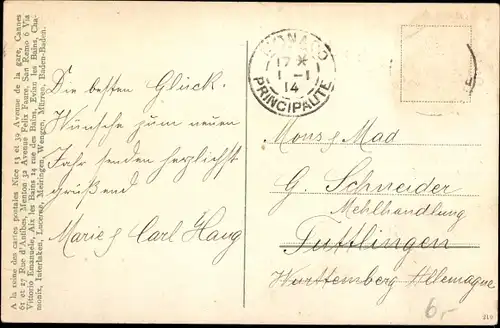 A la reine des cartes postales Nice 15 et 30 Avenue de la gare, Cannes
61 et 27 Rue d'Antibes, Menton 32 Avenue Felix Faure, San Remo 6 Via
Vittorio Emanuele, Aix les Bains 14 rue des Bains, Evian les Bains, Cha-
monix, Interlaken, Lucerne, Meiringen, Wengen, Mürren, Baden-Baden.
MONACO
17 *
1 - 1
14
PRINCIPAUTE
Die besten Glück-
Wünsche zum neuen
Jahr senden herzlichst
grüßend
Marie & Carl Haug
Mons & Mad
G. Schneider
Mehlhandlung
Tuttlingen
Württemberg Allemagne
6,-